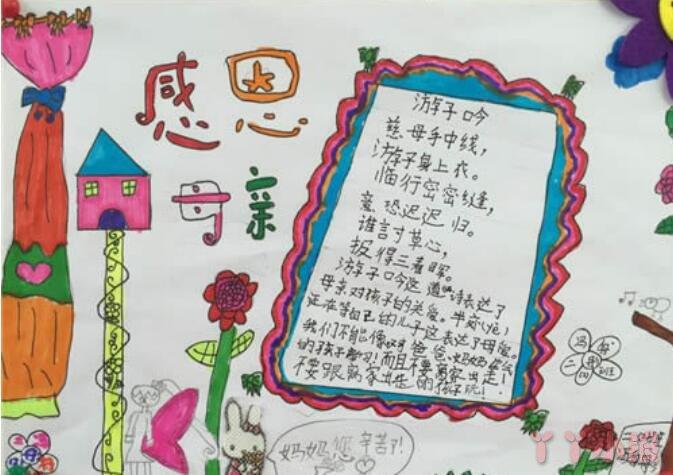 感恩
母亲
游子吟
慈母手中线，
游子身上衣。
临行密密缝，
意恐迟迟归。
谁言寸草心，
报得三春晖。
游子吟这道诗表达了
母亲对孩子的关爱。半夜心
还在等自己的儿子这表达了母爱。
我们不能像 爸爸、妈妈
的孩子 ！而且不要离家出走！
不要跟离家出走的孩子玩！
妈妈您辛苦了！